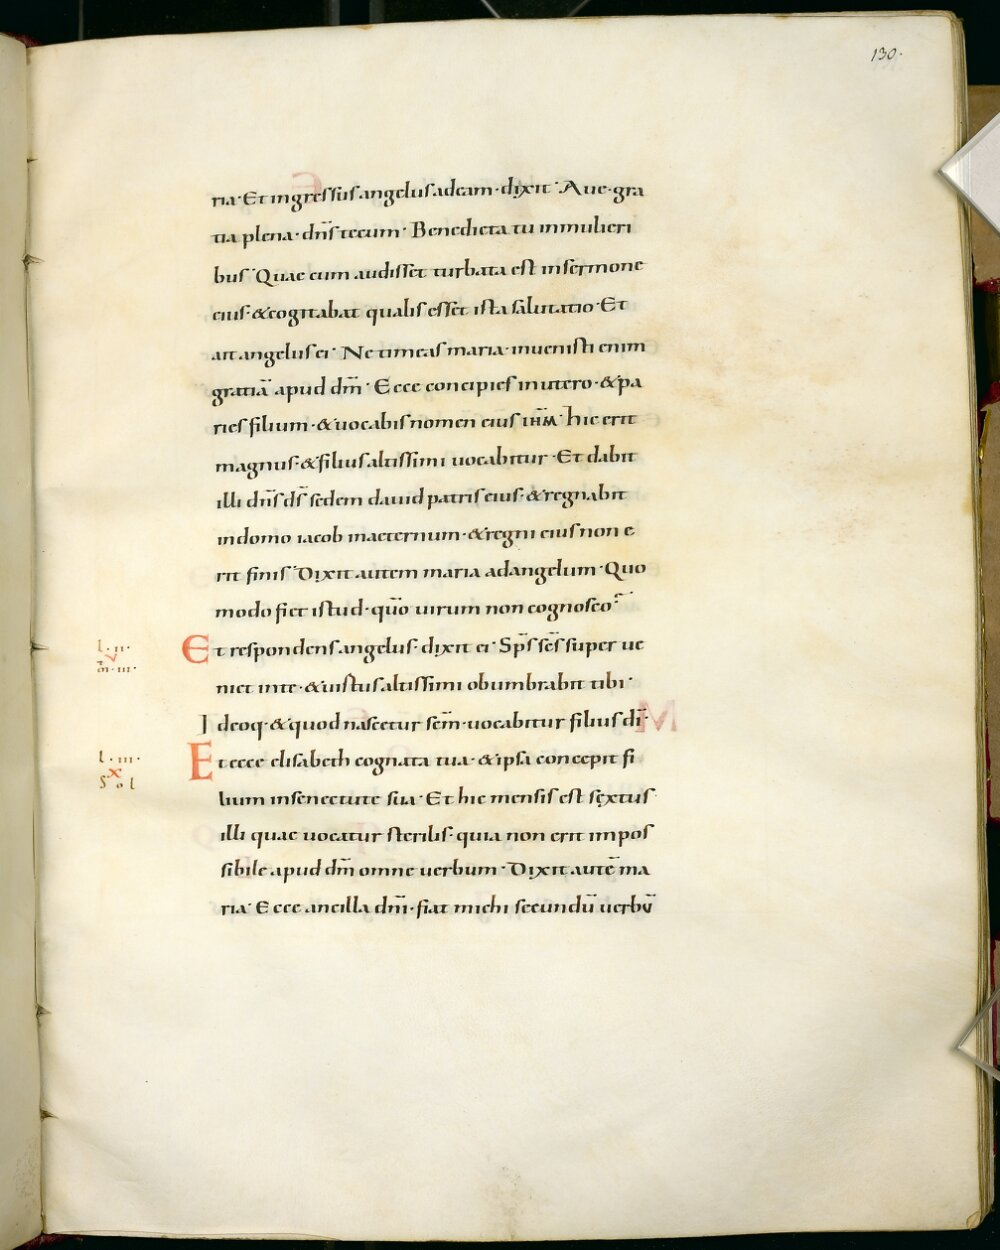 130.
ria· Et ingressus angelus ad eam· dixit· Aue· gra
tia plena· dn̄s tecum· Benedicta tu in mulieri
bus· Quae cum audisset turbata est in sermone
eius· & cogitabat qualis esset ista salutatio· Et
ait angelus ei· Ne timeas maria· inuenisti enim
gratiā apud dm̄· Ecce concipies in utero· & pa
ries filium· & uocabis nomen eius ih̄m· hic erit
magnus· & filius altissimi uocabitur· Et dabit
illi dn̄s ds̄ sedem dauid patris eius· & regnabit
in domo iacob in aeternum· & regni eius non e
rit finis· Dixit autem maria ad angelum· Quo
modo fiet istud· quō uirum non cognosco
l· ii·
m̄· iii·
Et respondens angelus· dixit ei· Sp̄s sc̄s super ue
niet in te· & uirtus altissimi obumbrabit tibi·
Ideoq· & quod nascetur sc̄m· uocabitur filius dī·
l· iii·
x
S o l
Et ecce elisabeth cognata tua· & ipsa concepit fi
lium in senectute sua· Et hic mensis est sextus·
illi quae uocatur sterilis· quia non erit impos
sibile apud dm̄ omne uerbum· Dixit autē ma
ria· Ecce ancilla dn̄i· fiat michi secundū uerbū